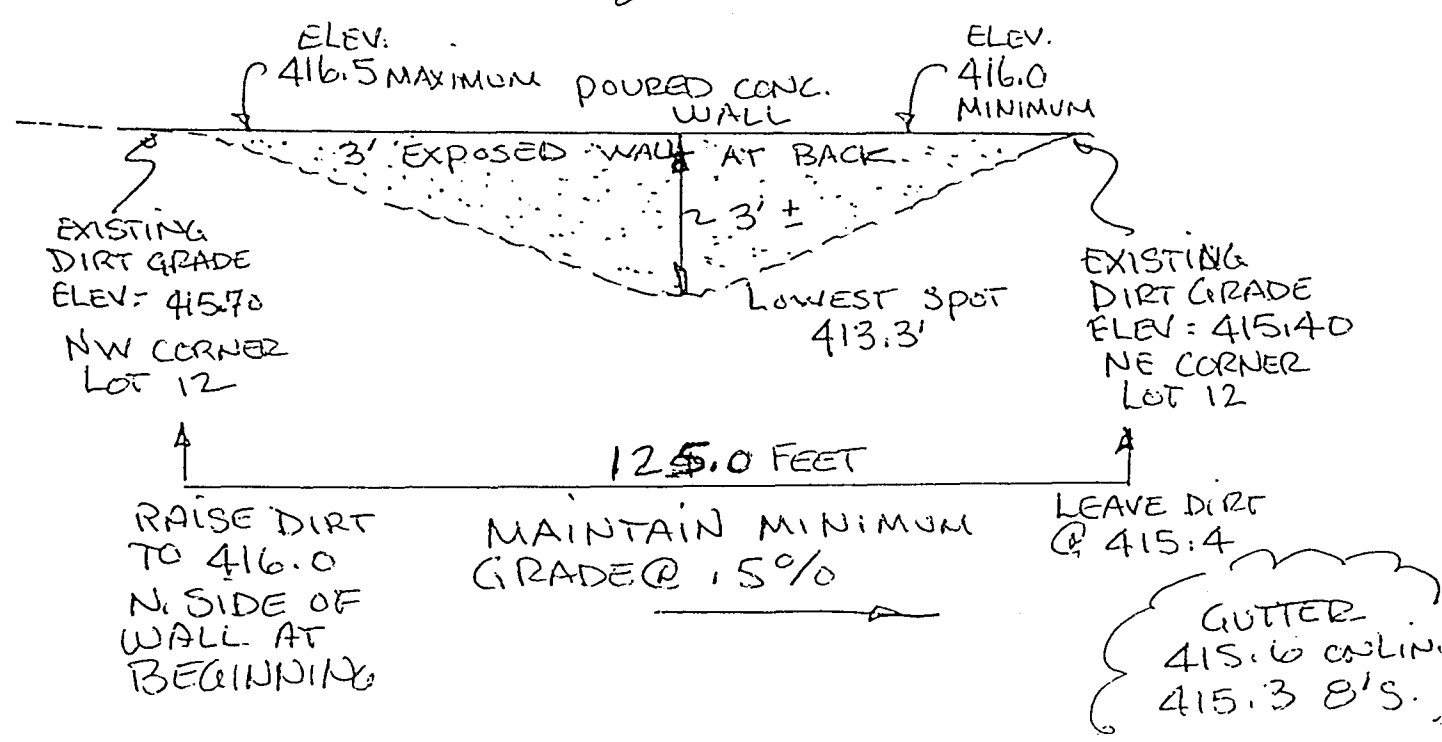 ELEV.
416.5 MAXIMUM
POURED CONC.
WALL
ELEV.
416.0
MINIMUM
3' EXPOSED WALL AT BACK.
~ 3' ±
EXISTING
DIRT GRADE
ELEV= 415.70
NW CORNER
LOT 12
LOWEST SPOT
413.3'
EXISTING
DIRT GRADE
ELEV = 415.40
NE CORNER
LOT 12
125.0 FEET
RAISE DIRT
TO 416.0
N. SIDE OF
WALL AT
BEGINNING
MAINTAIN MINIMUM
GRADE @ .5%
LEAVE DIRT
@ 415.4
GUTTER
415.6
415.3 8'S.